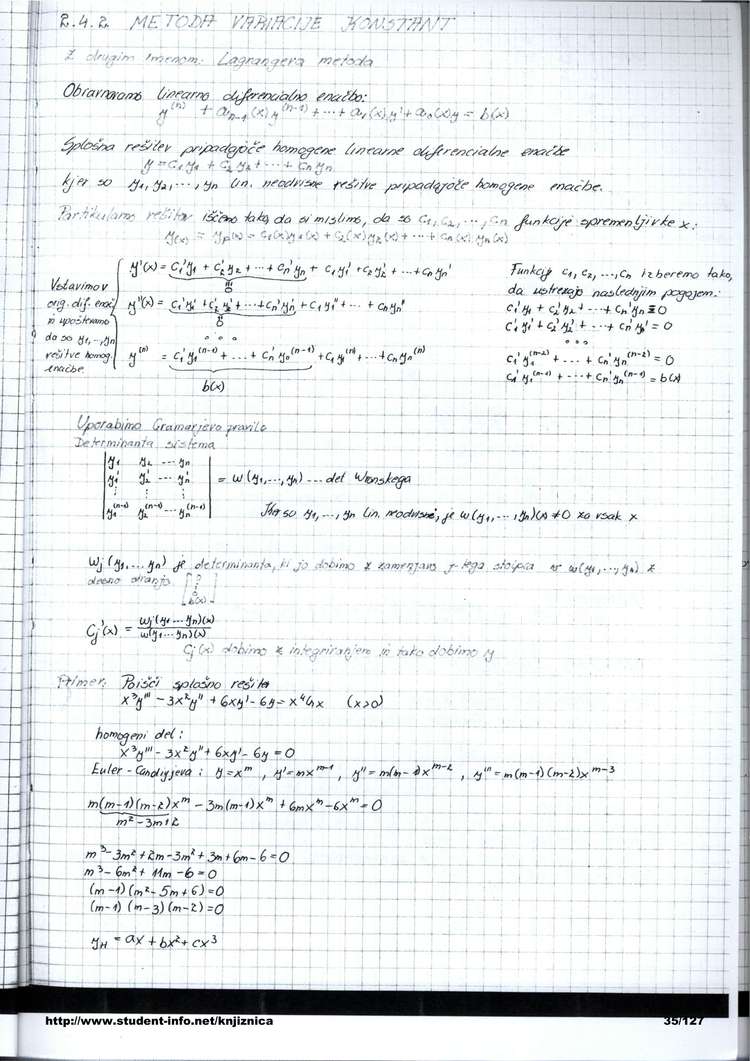 2.4.2 METODA VARIACIJE KONSTANT
Z drugim imenom: Lagrangeva metoda
Obravnavamo linearno diferencialno enačbo:
y^(n) + a_{n-1}(x) y^(n-1) + ... + a_1(x) y' + a_0(x) y = b(x)
Splošna rešitev pripadajoče homogene linearne diferencialne enačbe
y = c_1 y_1 + c_2 y_2 + ... + c_n y_n
kjer so y_1, y_2, ..., y_n lin. neodvisne rešitve pripadajoče homogene enačbe.
Partikularno rešitev iščemo tako, da si mislimo, da so c_1, c_2, ..., c_n funkcije spremenljivke x:
y(x) = y_p(x) = c_1(x) y_1(x) + c_2(x) y_2(x) + ... + c_n(x) y_n(x)
Vstavimo v
orig. dif. enač.
in upoštevamo
da so y_1, ..., y_n
rešitve homog.
enačbe.
y'(x) = c_1' y_1 + c_2' y_2 + ... + c_n' y_n + c_1 y_1' + c_2 y_2' + ... + c_n y_n'
0
y''(x) = c_1' y_1' + c_2' y_2' + ... + c_n' y_n' + c_1 y_1'' + ... + c_n y_n''
0
...
y^(n) = c_1' y_1^(n-1) + ... + c_n' y_n^(n-1) + c_1 y_1^(n) + ... + c_n y_n^(n)
b(x)
Funkcije c_1, c_2, ..., c_n izberemo tako,
da ustrezajo naslednjim pogojem:
c_1' y_1 + c_2' y_2 + ... + c_n' y_n = 0
c_1' y_1' + c_2' y_2' + ... + c_n' y_n' = 0
...
c_1' y_1^(n-2) + ... + c_n' y_n^(n-2) = 0
c_1' y_1^(n-1) + ... + c_n' y_n^(n-1) = b(x)
Uporabimo Cramarjevo pravilo
Determinanta sistema
| y_1 y_2 ... y_n |
| y_1' y_2' ... y_n' | = W(y_1, ..., y_n) ... det Wronskega
⋮ ⋮ ⋮
| y_1^(n-1) y_2^(n-1) ... y_n^(n-1) |
Ker so y_1, ..., y_n lin. neodvisne, je W(y_1, ..., y_n)(x) ≠ 0 za vsak x
W_j(y_1, ... y_n) je determinanta, ki jo dobimo z zamenjavo j-tega stolpca v W(y_1, ..., y_n) z
desno stranjo [0 0 ⋮ b(x)]
c_j'(x) = W_j(y_1 ... y_n)(x) / W(y_1 ... y_n)(x)
c_j(x) dobimo z integriranjem in tako dobimo y
Primer: Poišči splošno rešitev
x^3 y''' - 3x^2 y'' + 6xy' - 6y = x^4 ln x (x>0)
homogeni del:
x^3 y''' - 3x^2 y'' + 6xy' - 6y = 0
Euler-Caudiyjeva: y = x^m, y' = mx^{m-1}, y'' = m(m-1)x^{m-2}, y''' = m(m-1)(m-2)x^{m-3}
m(m-1)(m-2)x^m - 3m(m-1)x^m + 6mx^m - 6x^m = 0
m^2 - 3m + 2
m^3 - 3m^2 + 2m - 3m^2 + 3m + 6m - 6 = 0
m^3 - 6m^2 + 11m - 6 = 0
(m-1)(m^2 - 5m + 6) = 0
(m-1)(m-3)(m-2) = 0
y_H = ax + bx^2 + cx^3
http://www.student-info.net/knjiznica 35/127